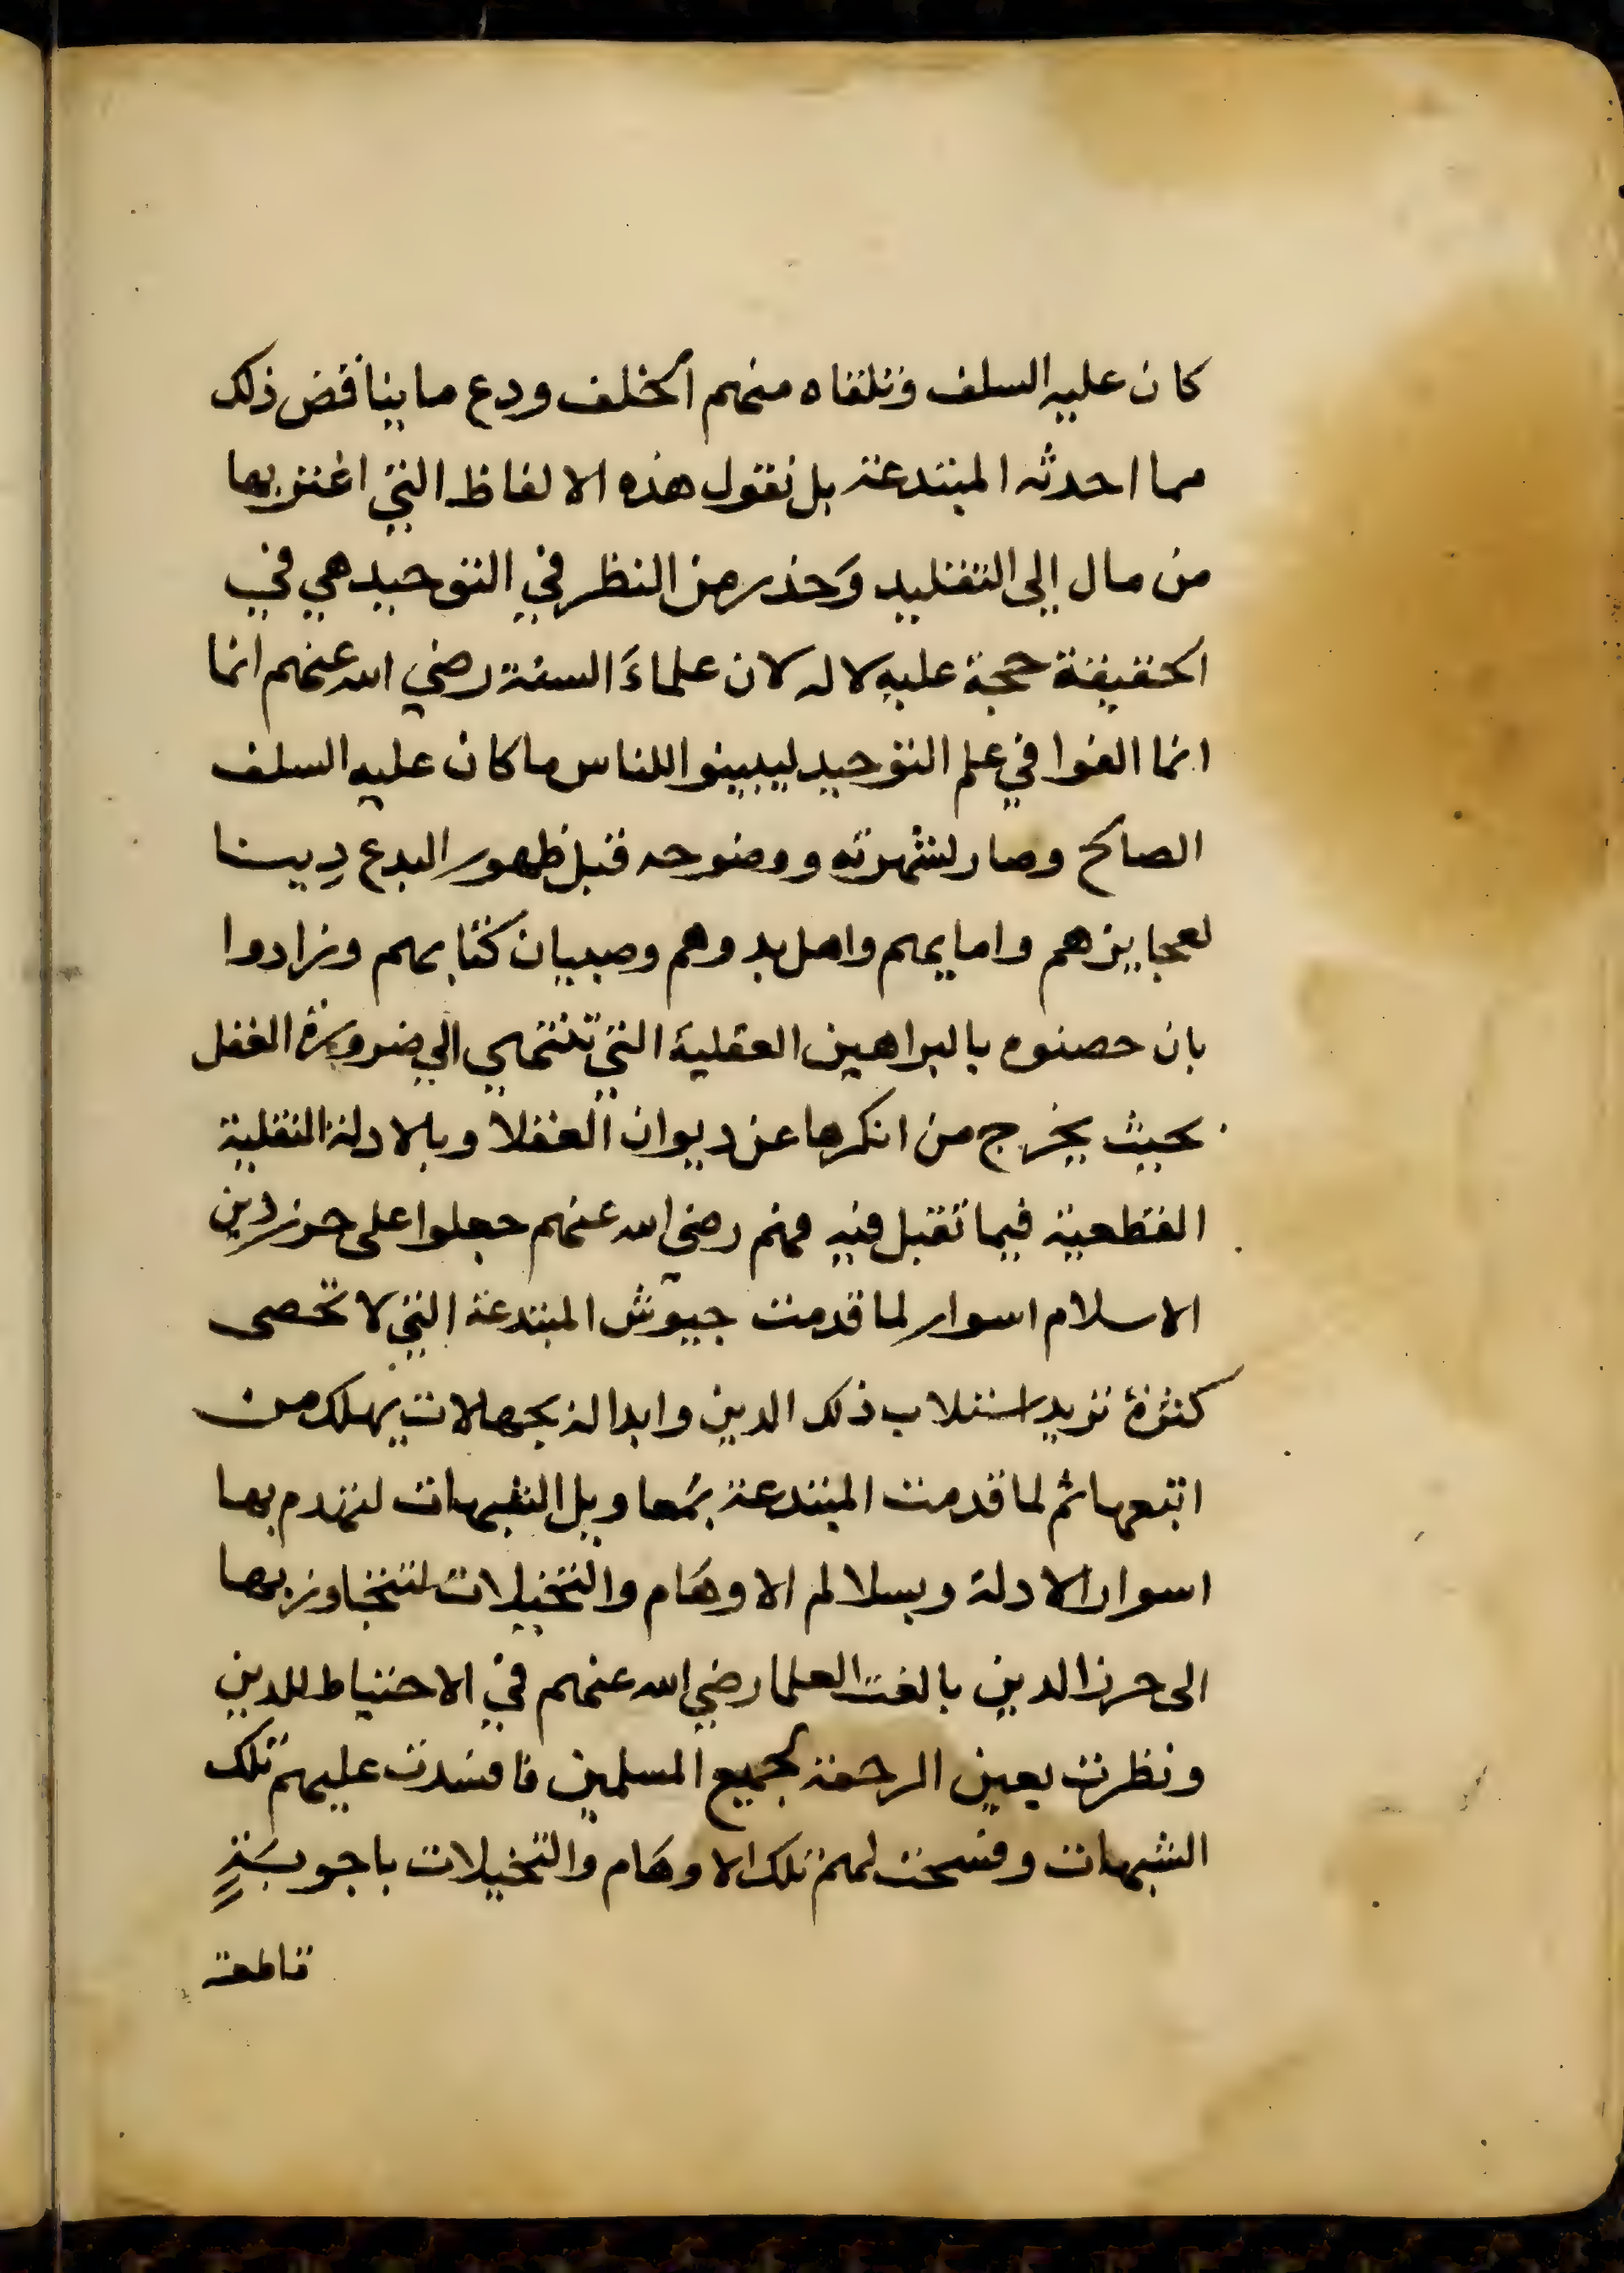 كان عليه السلف وتلقاه منهم الخلف ودع ما يناقض ذلك
مما احدثه المبتدعة بل نقول هذه الالفاظ التي اغتر بها
من مال إلى التقليد وَحذر من النظر في التوحيد هي في
الحقيقة حجة عليه لا له لان علماءَ السنة رضي الله عنهم انما
انما الفوا في علم التوحيد ليبينوا للناس ما كان عليه السلف
الصالح وصار لشهرته ووضوحه قبل ظهور البدع دِينا
لعجايزهم وامايهم واهل بدوهم وصبيان كتابهم وزادوا
بان حصنوه بالبراهين العقلية التي تنتهي الي ضرورة العقل
بحيث يخرج من انكرها عن ديوان العقلا وبالادلة النقلية
القطعية فيما تقبل فيه فهم رضي الله عنهم جعلوا على حرز دين
الاسلام اسوار لما قدمت جيوش المبتدعة التي لا تحصى
كثرة تريد استلاب ذلك الدين وابداله بجهالات يهلك من
اتبعها ثم لما قدمت المبتدعة بمعاويل الشبهات لتهدم بها
اسوار الادلة وبسلالم الاوهَام والتخيلات لتتجاوز بها
الى حرز الدين بالغت العلما رضي الله عنهم في الاحتياط للدين
ونظرت بعين الرحمة لجميع المسلمين فافسدت عليهم تلك
الشبهات وفسخت لهم تلك الاوهَام والتخيلات باجوبَةٍ
قاطعة